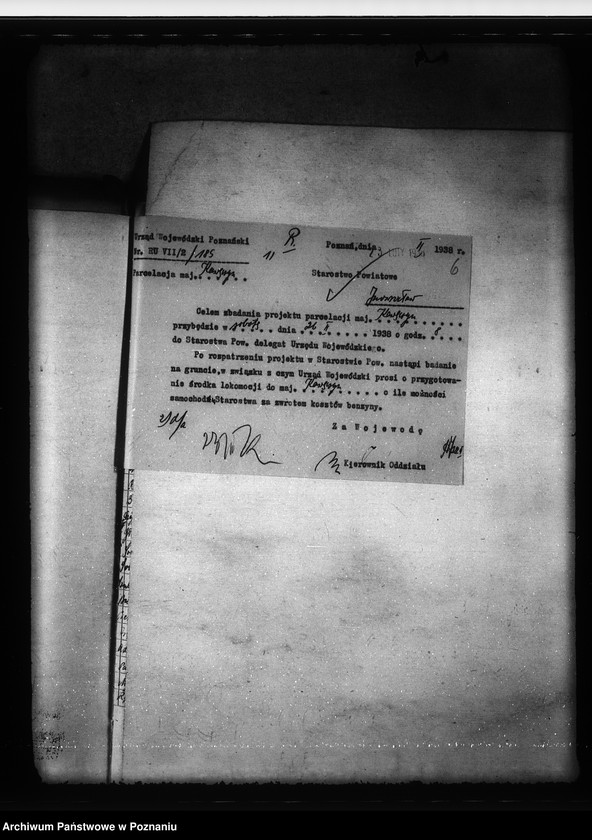 Urząd Wojewódzki Poznański
Nr. RU VII/2/185
R.
Poznań, dnia 23 LUTY 1938 II 1938 r.
6
Parcelacja maj.
Starostwo Powiatowe
Inowrocław
Celem zbadania projektu parcelacji maj.
przybędzie w sobotę dnia 26 II 1938 o godz. 8
do Starostwa Pow. delegat Urzędu Wojewódzkiego.
Po rozpatrzeniu projektu w Starostwie Pow. nastąpi badanie
na gruncie, w związku z czym Urząd Wojewódzki prosi o przygotowa-
nie środka lokomocji do maj. o ile możności
samochodu Starostwa za zwrotem kosztów benzyny.
Za Wojewodę
Kierownik Oddziału
Archiwum Państwowe w Poznaniu